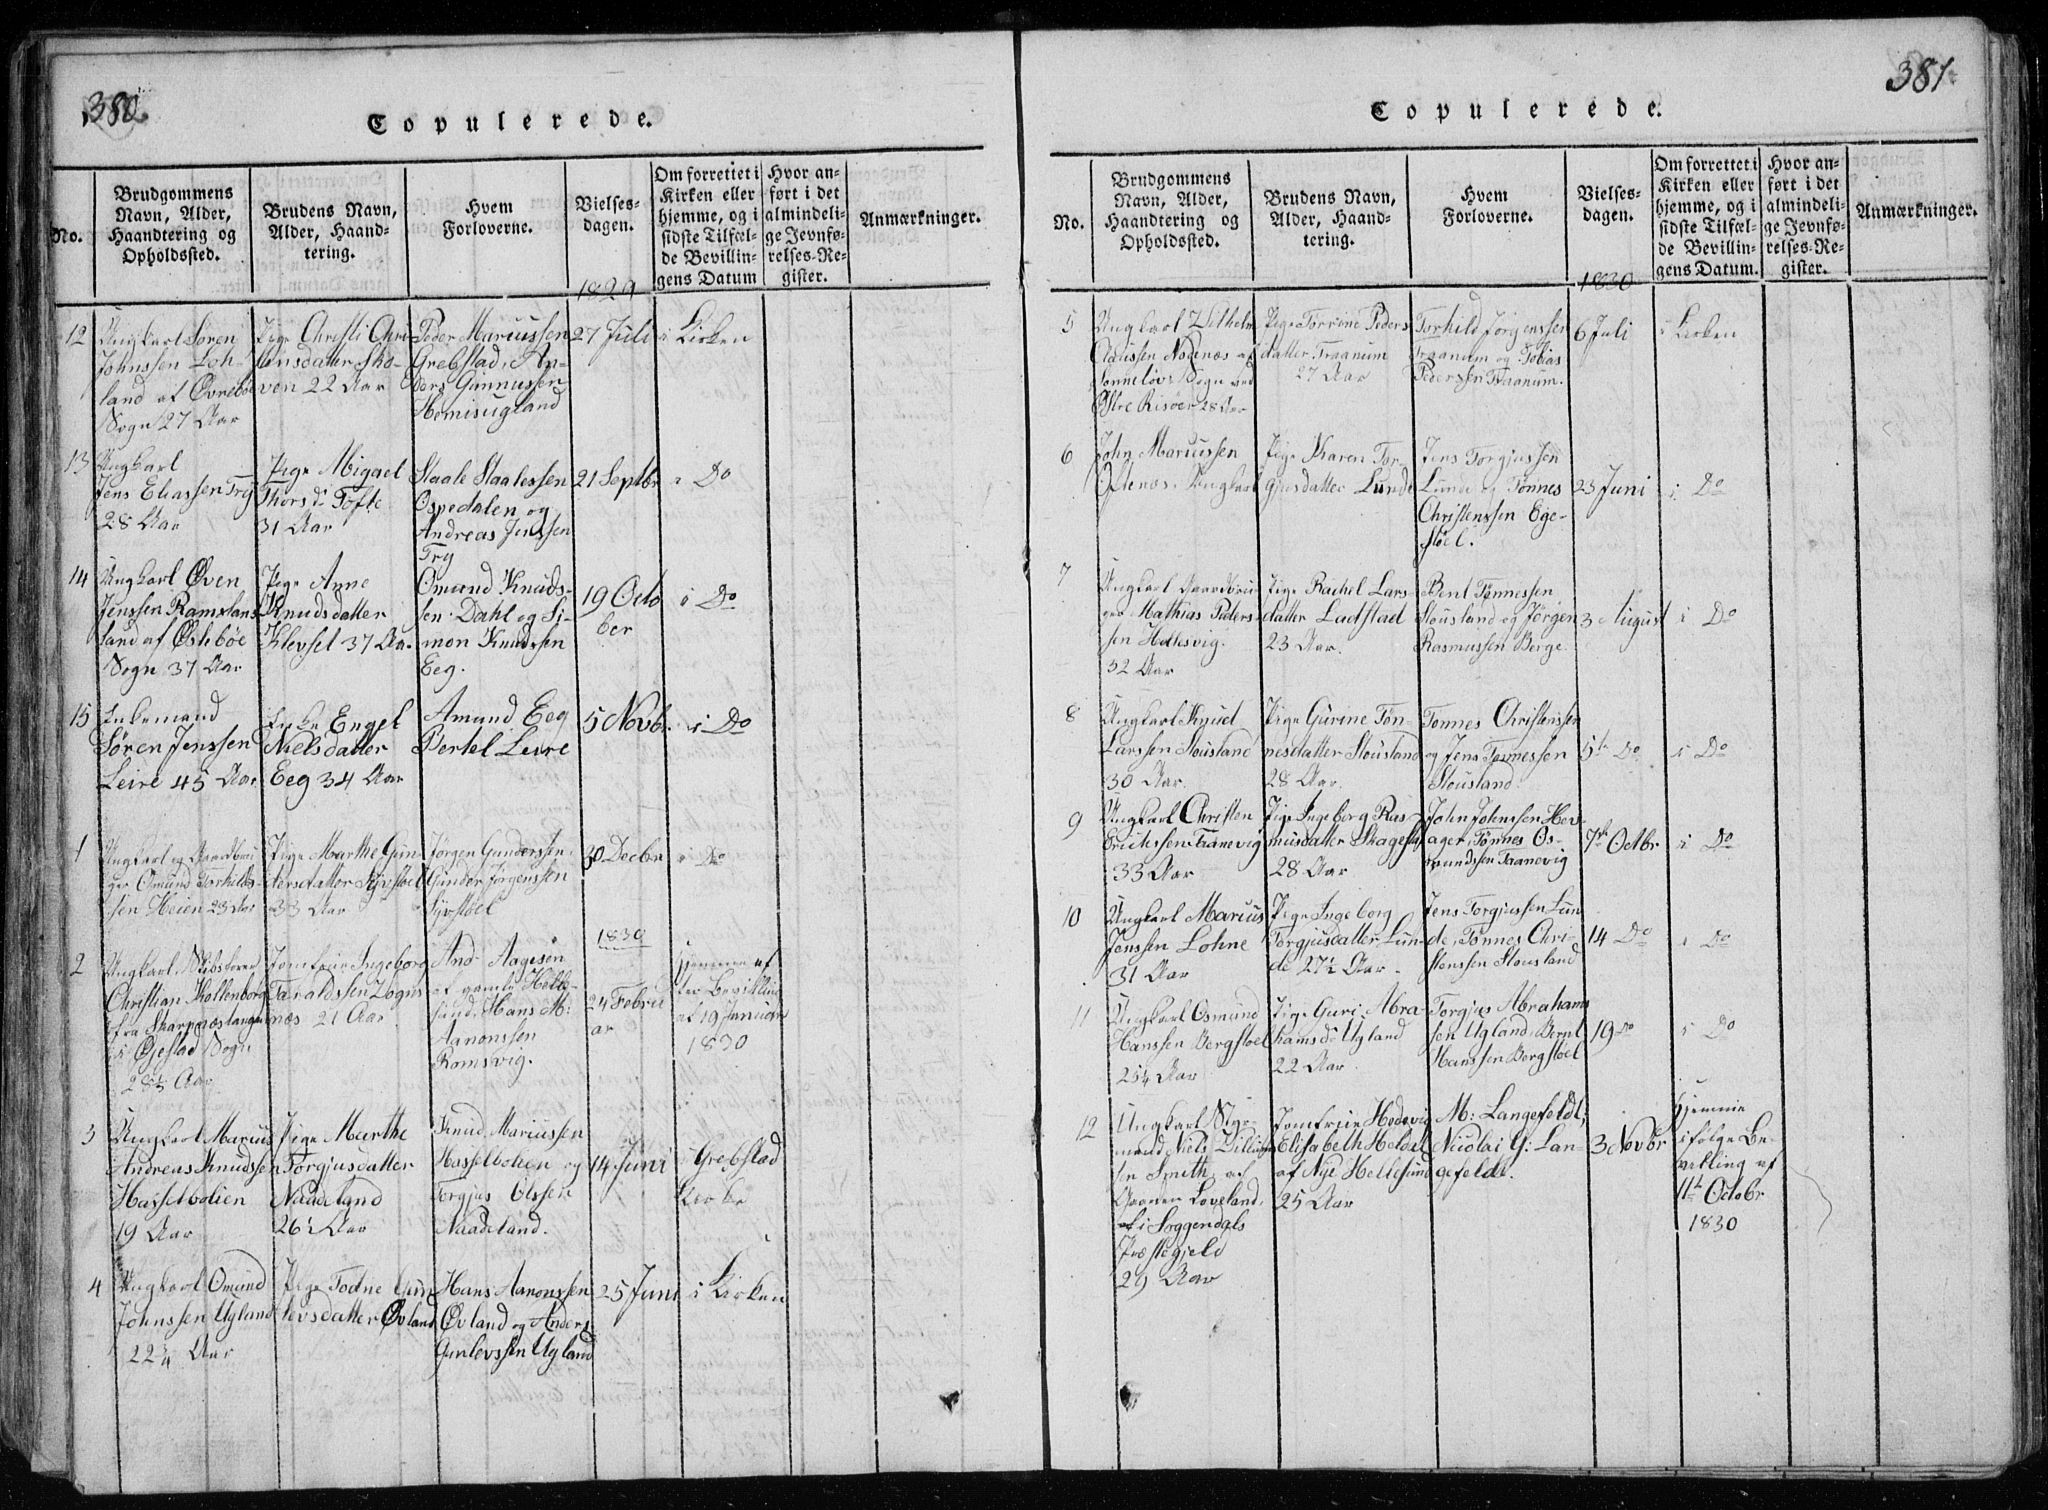 380.
Copulerede.
No.
Brudgommens
Navn, Alder,
Haandtering og
Opholdssted.
Brudens Navn,
Alder, Haand-
tering.
Hvem
Forloverne.
Vielses-
dagen.
Om forrettet i
Kirken eller
hjemme, og i
sidste Tilfæl-
de Bevillin-
gens Datum
Hvor an-
ført i det
almindeli-
ge Jevnfø-
relses-Re-
gister.
Anmærkninger.
1829
12
Ungkarl Søren
Johnssen Loh-
land af Øvrebø
Sogn 27 Aar
Pige Christi Chri-
stensdatter Sko-
ven 22 Aar
Peder Mariussen
Grebstad, An-
ders Gunnussen
Homisugland
27 Juli
i Kirken
13
Ungkarl
Jens Eliassen Try
28 Aar
Pige Migael
Thors D: Tofte
31 Aar
Staale Staalessen
Ospedalen og
Andreas Jenssen
Try
21 Septbr
i Do
14
Ungkarl Øven
Jenssen Ramslans-
land af Østebøe
Sogn 37 Aar
Pige Anne
Knudsdatter
Klevset 37 Aar
Omund Knuds-
sen Dahl og Si-
mon Knudssen
Eeg.
19 Octo
ber
i Do
15
Enkemand
Søren Jenssen
Leire 45 Aar
Enke Engel
Nielsdatter
Eeg 34 Aar
Amund Eeg
Bertel Leire
5 Novbr.
i Do
1
Ungkarl og Gaardbru
ger Omund Torkilds-
sen Heien 23 Aar
Pige Marthe Gun-
dersdatter Syvstoel
33 Aar
Jørgen Gunderssen
Gunder Jørgenssen
Syvstoel
30 Decbr
i Do
1830
2
Ungkarl, Skibsfører
Christian Kallenborg
fra Skarpnæstangen
i Øjestad Sogn
28½ Aar
Jomfrue Ingeborg
Taraldssen Vogns
næs 21 Aar
And: Aagesen
af gamle Helle-
sund. Hans M:
Aanonssen
Romsvig.
24 Febru
ar
hjemme ef
ter Bevilling
af 19 Januar
1830
3
Ungkarl Marius
Andreas Knudssen
Hasselbolien
19 Aar
Pige Marthe
Torgjusdatter
Naadeland
26½ Aar
Knud Mariussen
Hasselbolien og
Torgjus Olssen
Naadeland.
14 Juni
i Grebstad
Kirke
4
Ungkarl Omund
Johnssen Ugland
22¾ Aar
Pige Todne Gun
levsdatter Øvland
Hans Aanonssen
Øvland og Anders
Gunlevssen Ugland
25 Juni
i Kirken
381.
Copulerede.
No.
Brudgommens
Navn, Alder,
Haandtering og
Opholdssted.
Brudens Navn,
Alder, Haand-
tering.
Hvem
Forloverne.
Vielses-
dagen.
Om forrettet i
Kirken eller
hjemme, og i
sidste Tilfæl-
de Bevillin-
gens Datum.
Hvor an-
ført i det
almindeli-
ge Jevnfø-
relses-Re-
gister.
Anmærkninger.
1830
5
Ungkarl Wilhelm
Claussen Nodenæs af
Sønneløvs Sogn ved
Østre Risøer 28 Aar
Pige Torrine Peders
datter Traanum
27 Aar
Torkild Jørgenssen
Traanum og Tobias
Pederssen Traanum.
6 Juli
i Kirken
6
John Mariussen
Oftenæs. Ungkarl
Pige Karen Tor-
gjusdatter Lunde
Jens Torgjussen
Lunde og Tønnes
Christenssen Ege-
støel.
23 Juni
i Do
7
Ungkarl Gaardbru
ger Mathias Peders-
sen Hellesvig.
32 Aar
Pige Rachel Lars-
datter Ladstad
23 Aar.
Bent Tønnessen
Stousland og Jørgen
Rasmussen Berge
3 August
i Do
8
Ungkarl Knud
Larssen Stousland
30 Aar.
Pige Gurine Tøn-
nesdatter Stousland
28 Aar.
Tønnes Christenssen
og Jens Tønnessen
Stousland.
5te Do
i Do
9
Ungkarl Christen
Erichssen Tranevig
33 Aar
Pige Ingeborg Ras-
musdatter Skagestad
28 Aar
John Johnssen Høv-
ager, Tønnes Os-
mundssen Taanevig
7de Octbr
i Do
10
Ungkarl Marius
Jonssen Lohne
31 Aar
Pige Ingeborg
Torgjusdatter Lun-
de 27½ Aar
Jens Torgjussen Lun
de, Tønnes Chri-
stenssen Stousland
14 Do
i Do
11
Ungkarl Osmund
Hanssen Bergstoel
25¼ Aar
Pige Guri Abra-
hams D: Ugland
22 Aar
Torgjus Abrahams
sen Ugland, Bernt
Hanssen Bergstoel
19 Do
i Do
12
Ungkarl Styr-
mand Niels
sen Smith, af
Gaarden Løveland,
i Soggendals
Præstegjeld
29 Aar
Jomfrue Hedevig
Elisabeth Heldal
af Nye Hellesund
25 Aar
M: Langefeldt,
Nicolai G: Lan-
gefeldt.
3 Novbr
hjemme
ifølge Be-
villing af
11te Octobr
1830